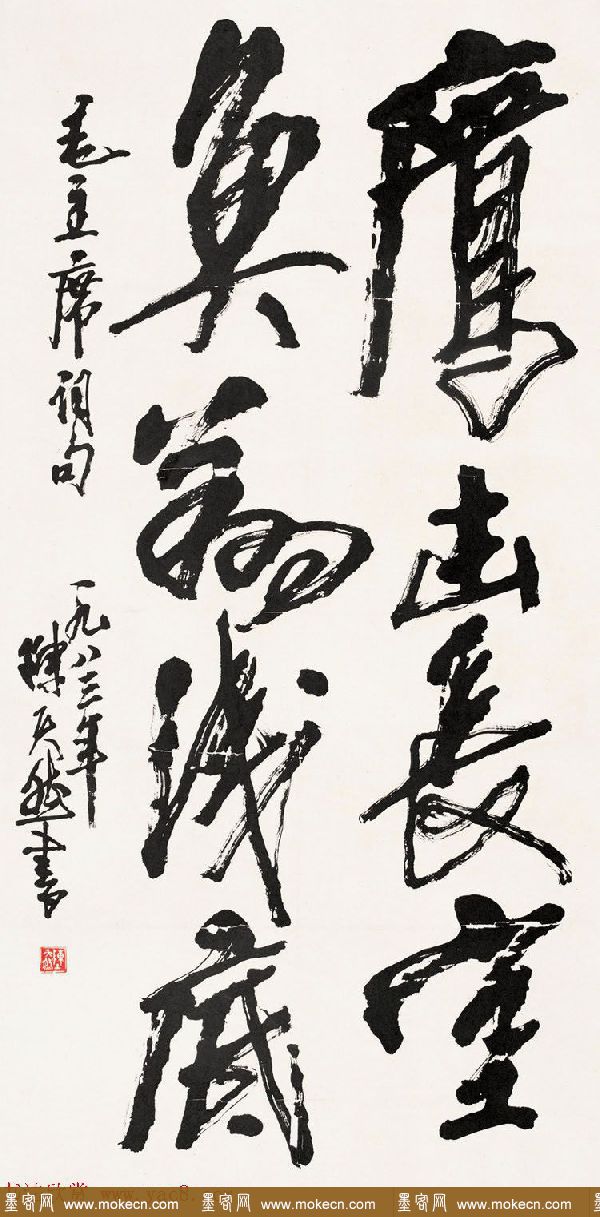 鹰击長空
魚翔浅底
毛主席词句
一九八三年
陳天然書
www.yac8.
墨客网 www.mokecn.com 墨客网 www.mokecn.com 墨客网 www.mokecn.com